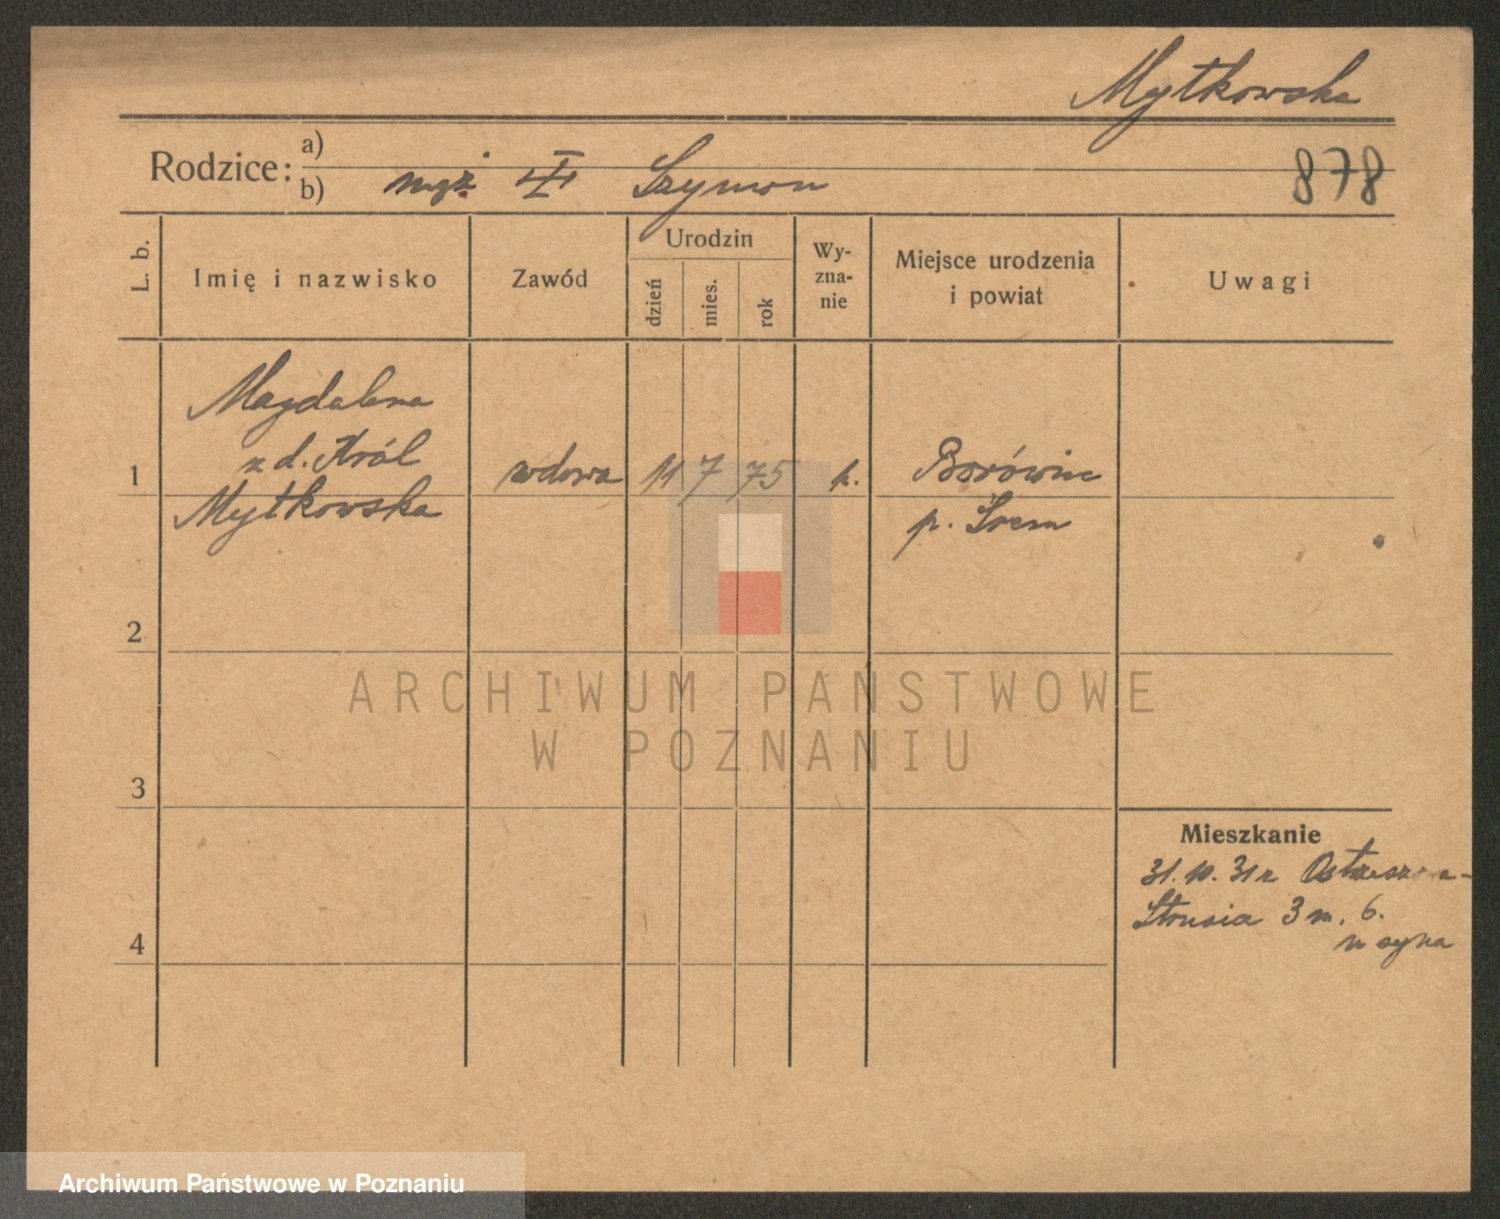 Mytkowska
Rodzice:
a)
b) mąż Szymon
878
L. b.
Imię i nazwisko
Zawód
Urodzin
dzień
mies.
rok
Wy-
zna-
nie
Miejsce urodzenia
i powiat
Uwagi
Magdalena
z d. Król
1 wdowa 11 7 75 k. Borówiec
Mytkowska p. Śrem
2
ARCHIWUM PAŃSTWOWE
W POZNANIU
3
Mieszkanie
31.10.31 r
3 m. 6.
4
u syna
Archiwum Państwowe w Poznaniu